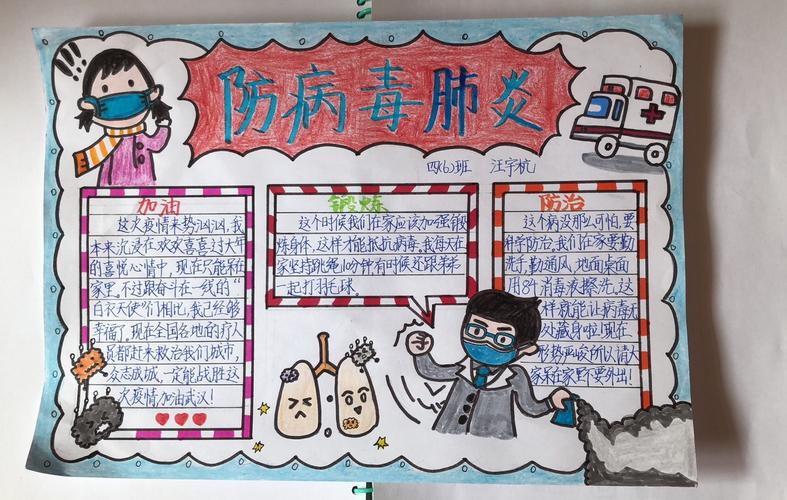 防病毒肺炎
四(6)班 汪宇杭
加油
这次疫情来势汹汹,我
本来沉浸在欢欢喜喜过大年
的喜悦心情中,现在只能呆在
家里,不过跟奋斗在一线的“
白衣天使”们相比,我已经够
幸福了,现在全国各地的医护人
员都赶来救治我们城市,
众志成城,一定能战胜这
次疫情加油武汉!
锻炼
这个时候我们在家应该加强锻
炼身体,这样才能抵抗病毒,我每天在
家坚持跳绳10分钟有时候还跟弟弟
一起打羽毛球。
防治
这个病没那么可怕,要
科学防治,我们在家要勤
洗手,勤通风,地面桌面
用84消毒液擦洗,这
样就能让病毒无
处藏身啦!现在
形势严峻所以请大
家呆在家里不要外出!